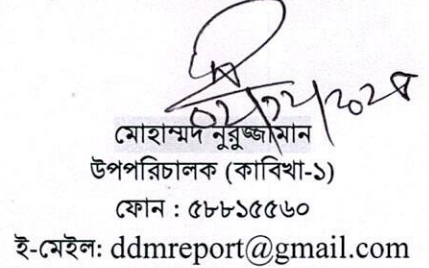 মোহাম্মদ নুরুজ্জামান
উপপরিচালক (কাবিখা-১)
ফোন : ৫৮৮১৫৫৬০
ই-মেইল: ddmreport@gmail.com